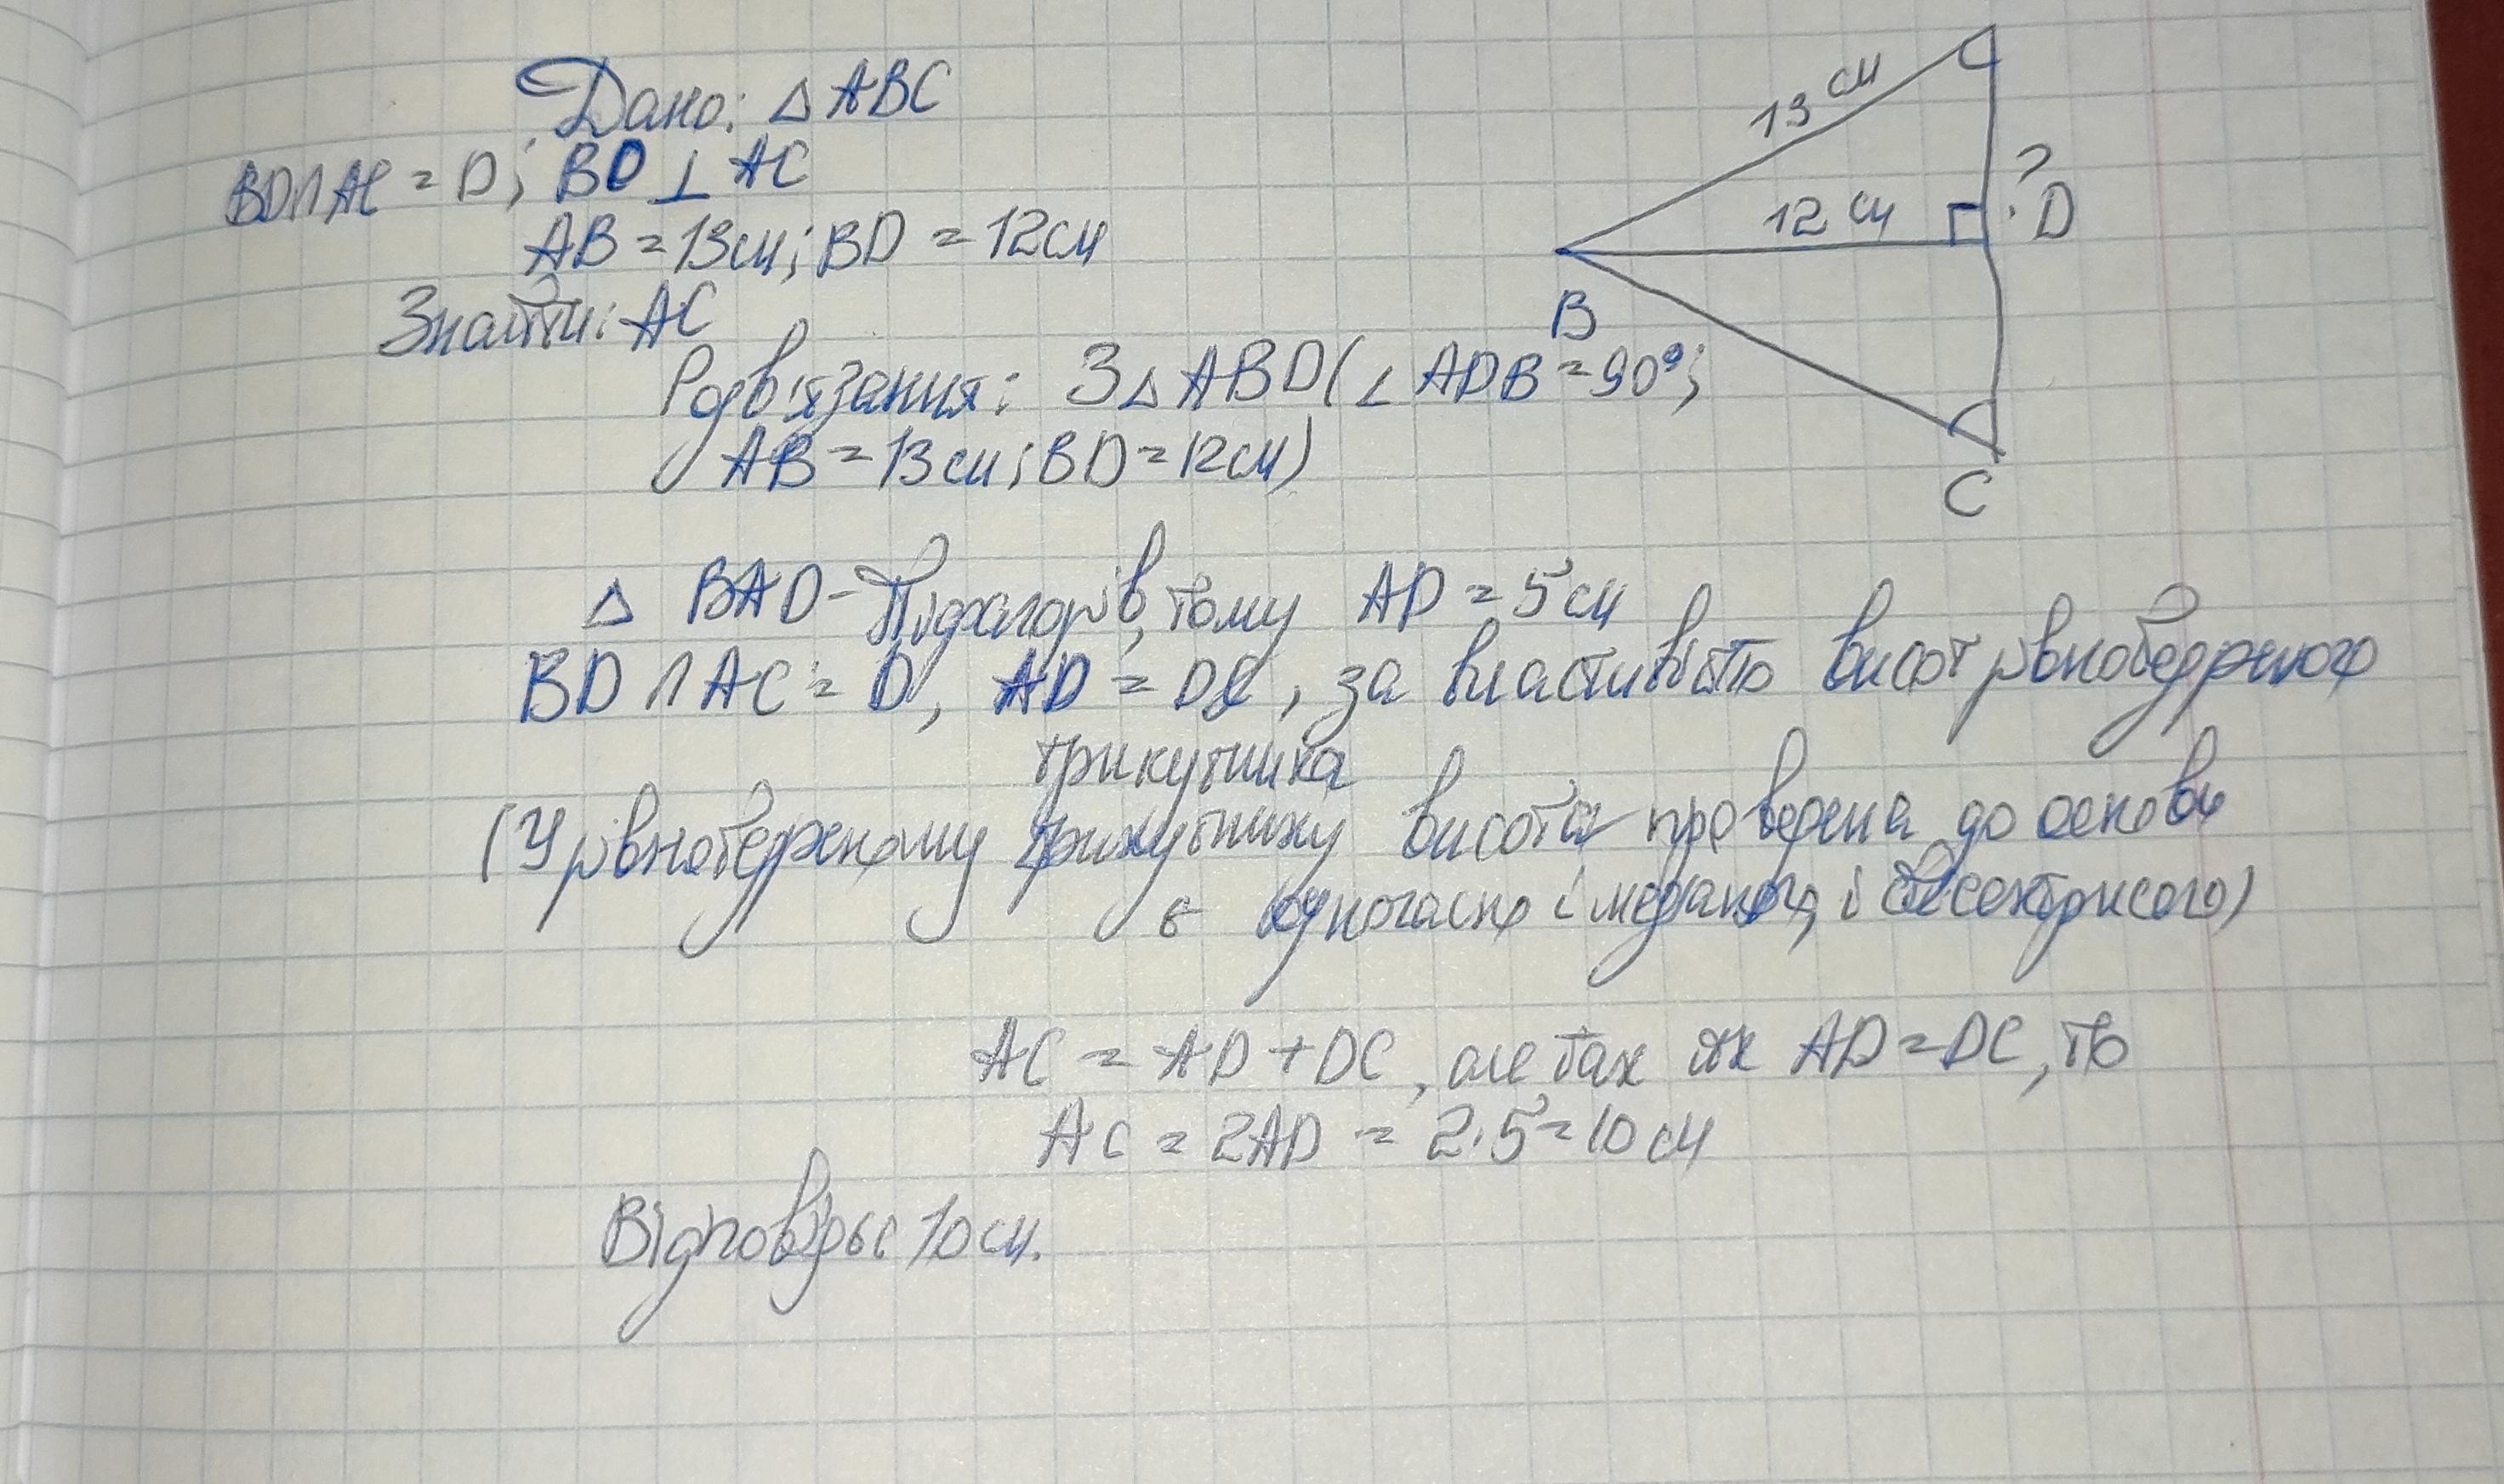 Дано: △ ABC
BD∩AC = D; BD ⊥ AC
AB = 13см; BD = 12см
Знайти: AC
Розв'язання: З △ ABD(∠ ADB = 90°;
AB = 13см; BD = 12см)
13 см
12 см
?
D
B
C
△ BAD - Піфагорів, тому AD = 5 см
BD ∩ AC = D, AD = DC, за властивістю висот рівнобедреного
трикутника
(У рівнобедреному трикутнику висота проведена до основи
є одночасно і медіаною, і бісектрисою)
AC = AD + DC, але так як AD = DC, то
AC = 2AD = 2·5 = 10 см
Відповідь: 10 см.